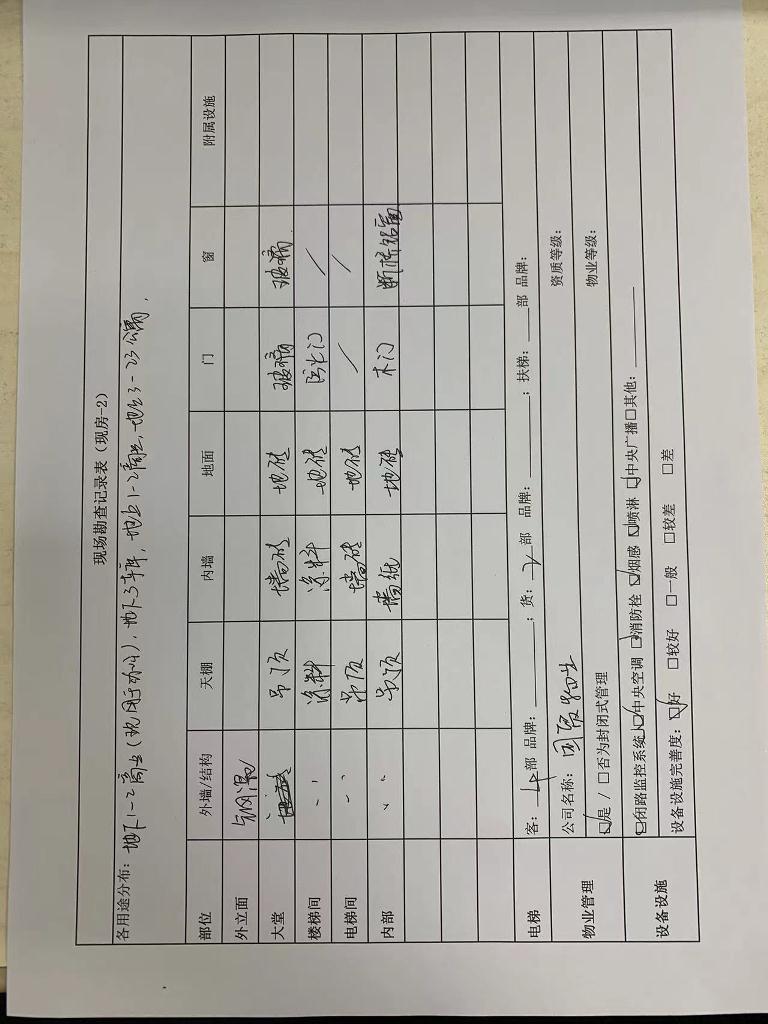 现场勘查记录表（现房-2）
各用途分布：地下1-2商业（现用于办公），地下3车库，地上1-2商业，地上3-23公寓，
部位 外墙/结构 天棚 内墙 地面 门 窗 附属设施
外立面 钢混
大堂 吊顶 墙砖 地砖 玻璃 玻璃
楼梯间 〃 涂料 涂料 地砖 防火门 /
电梯间 〃 吊顶 墙砖 地砖 / /
内部 〃 吊顶 墙纸 地砖 木门 断桥铝窗
电梯 客：4部 品牌：______；货：2部 品牌：______；扶梯：___部 品牌：
物业管理 公司名称：国贸物业 资质等级：
☑是 / □否为封闭式管理 物业等级：
设备设施 ☑闭路监控系统 ☑中央空调 ☑消防栓 ☑烟感 ☑喷淋 ☑中央广播 □其他：______
设备设施完善度：☑好 □较好 □一般 □较差 □差